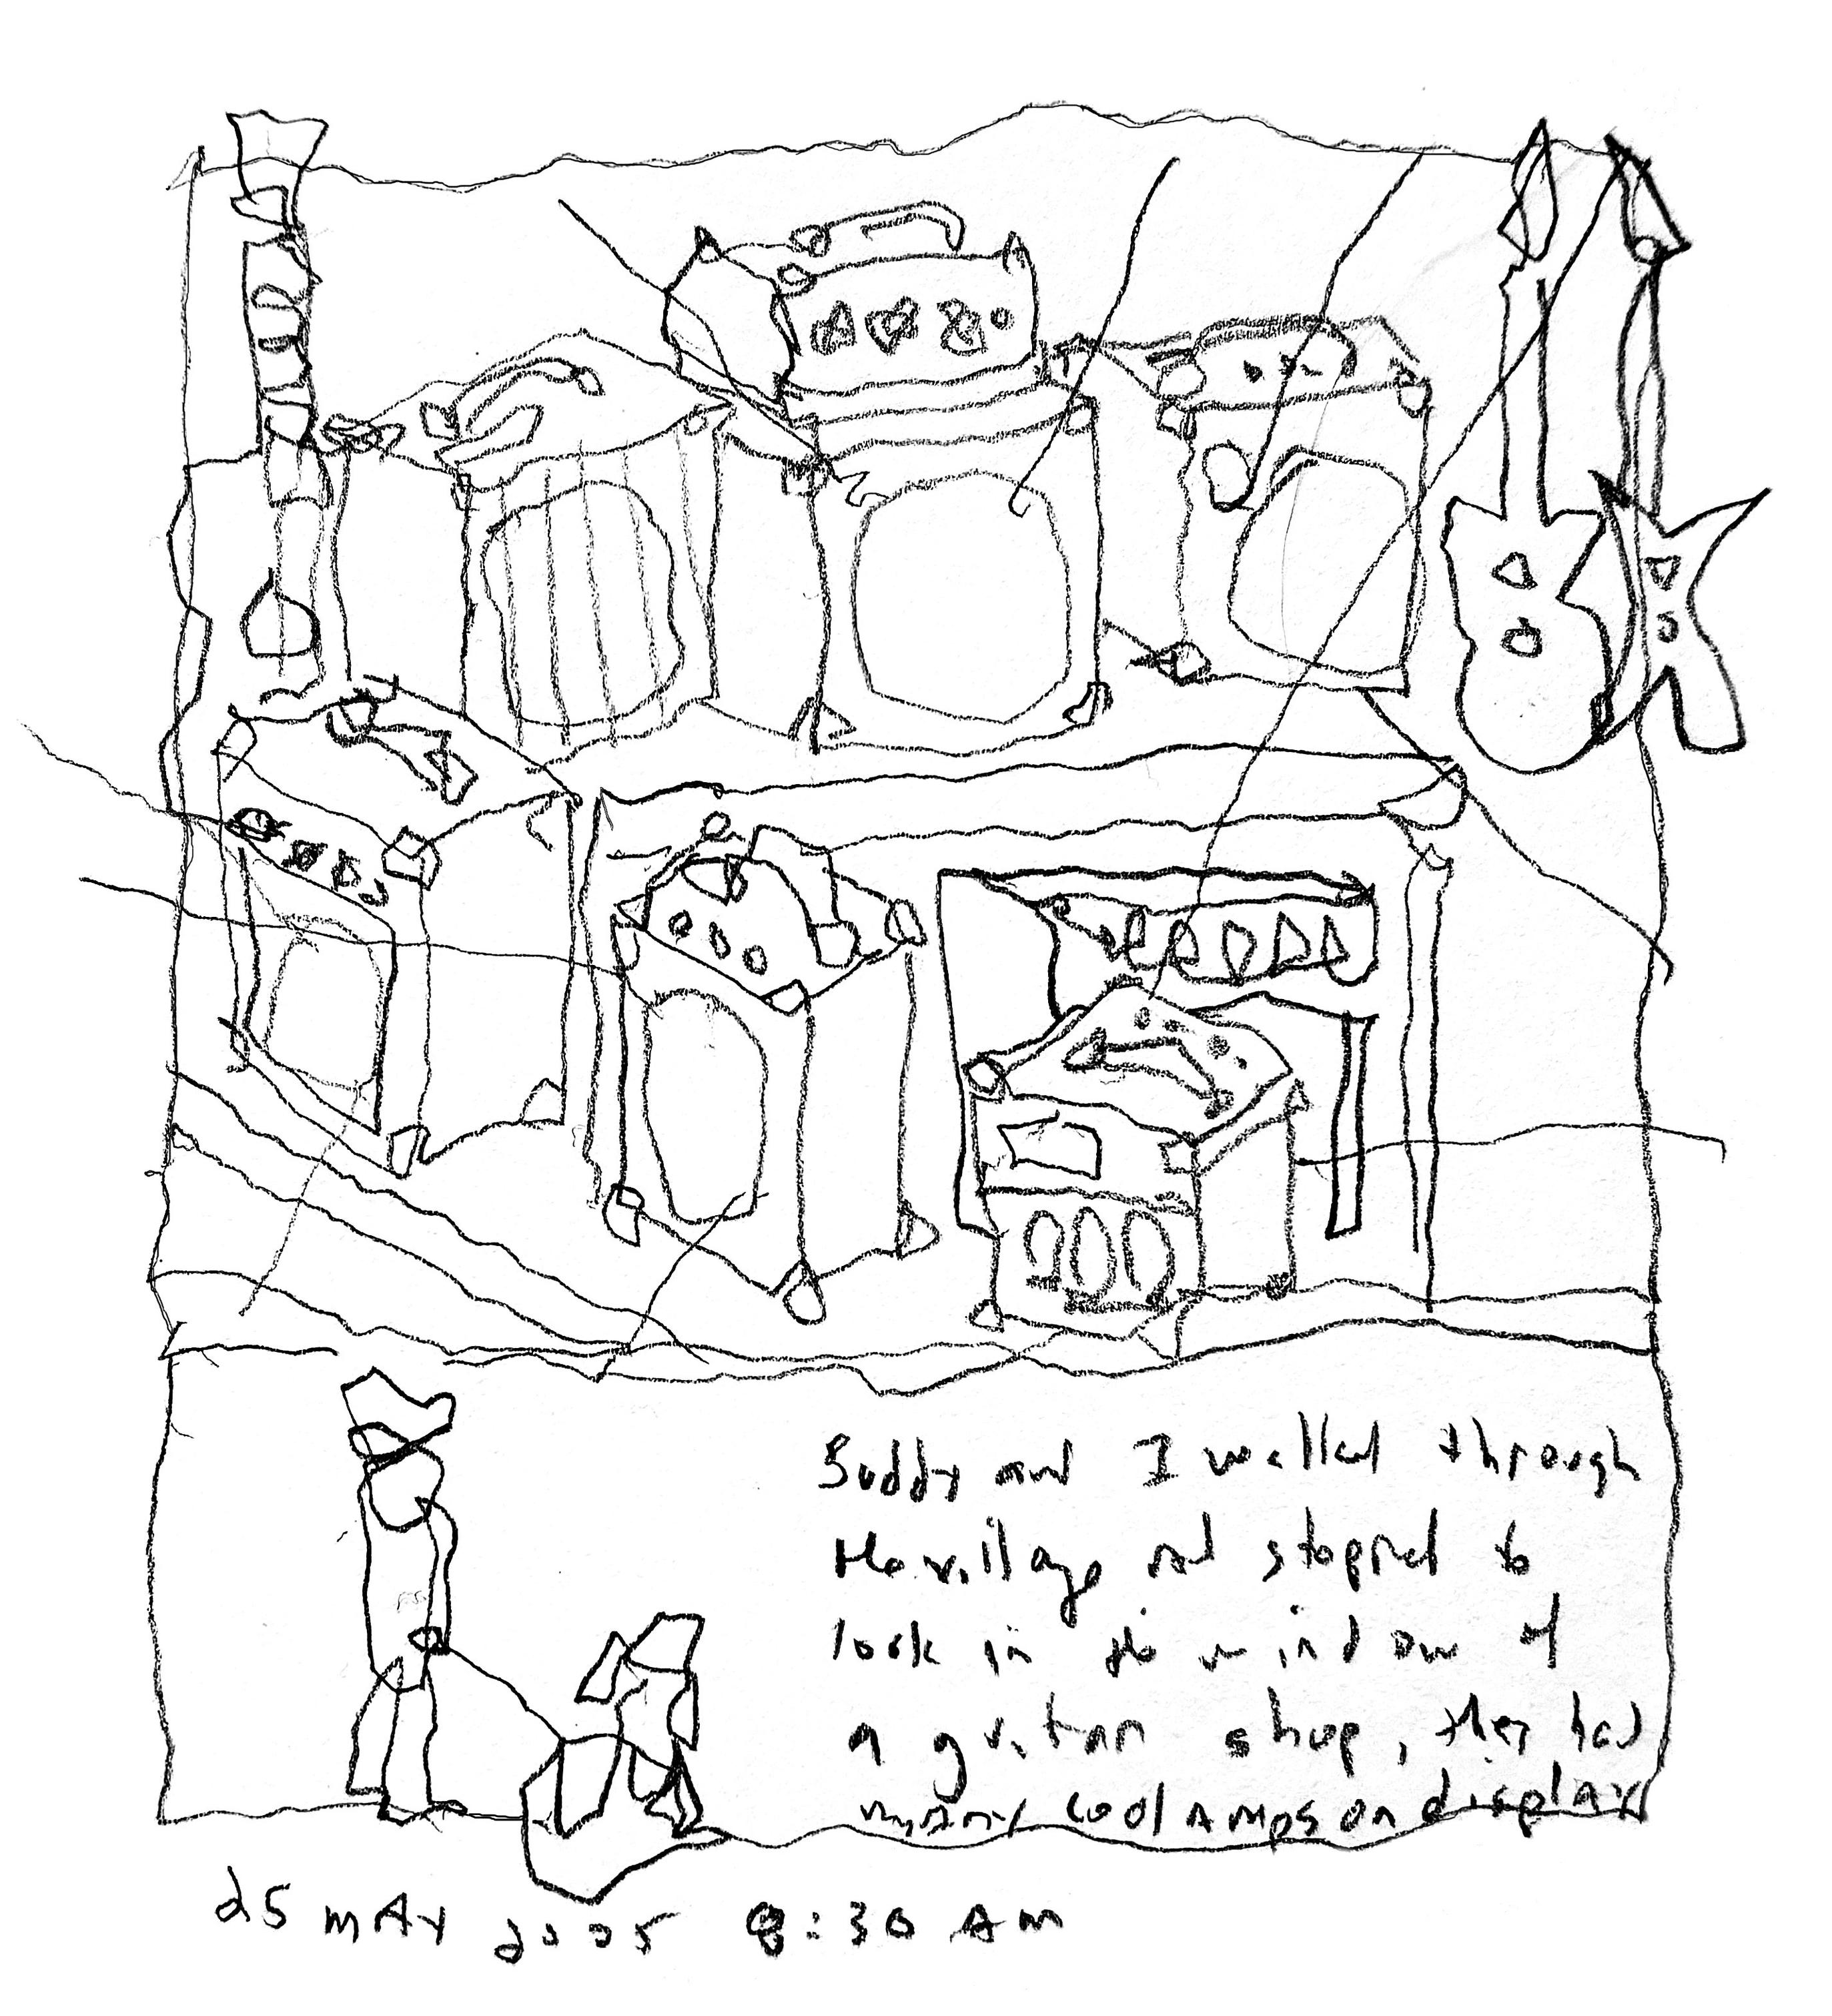 Buddy and I walked through
the village and stopped to
look in the window of
a guitar shop, they had
many cool amps on display
25 MAY 2025 8:30 AM